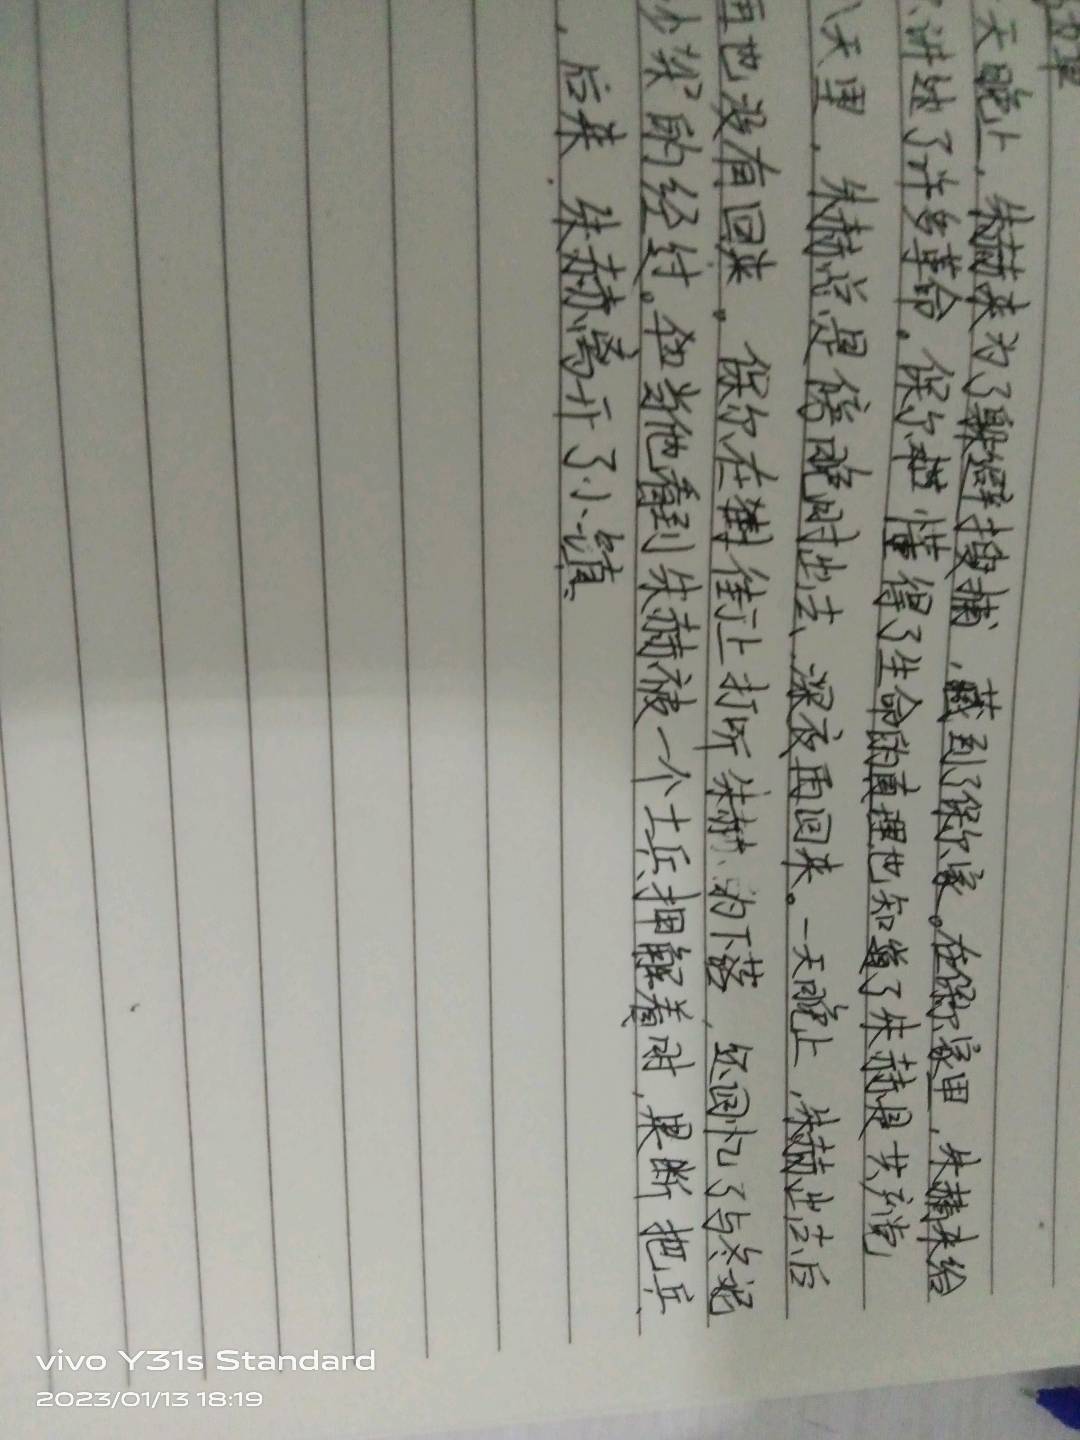 天晚上,朱赫来为了躲避搜捕,藏到了保尔家。在保尔家里,朱赫来给
讲述了许多革命。保尔懂得了生命的真理也知道了朱赫是共产党
八天里,朱赫总是傍晚时出去,深夜再回来。一天晚上,朱赫出去后
再也没有回来。保尔在街上打听朱赫的下落,还回忆了与冬妮
的经过。但当他看到朱赫被一个士兵押解着时,果断把兵
,后来 朱赫离开了小镇
vivo Y31s Standard
2023/01/13 18:19